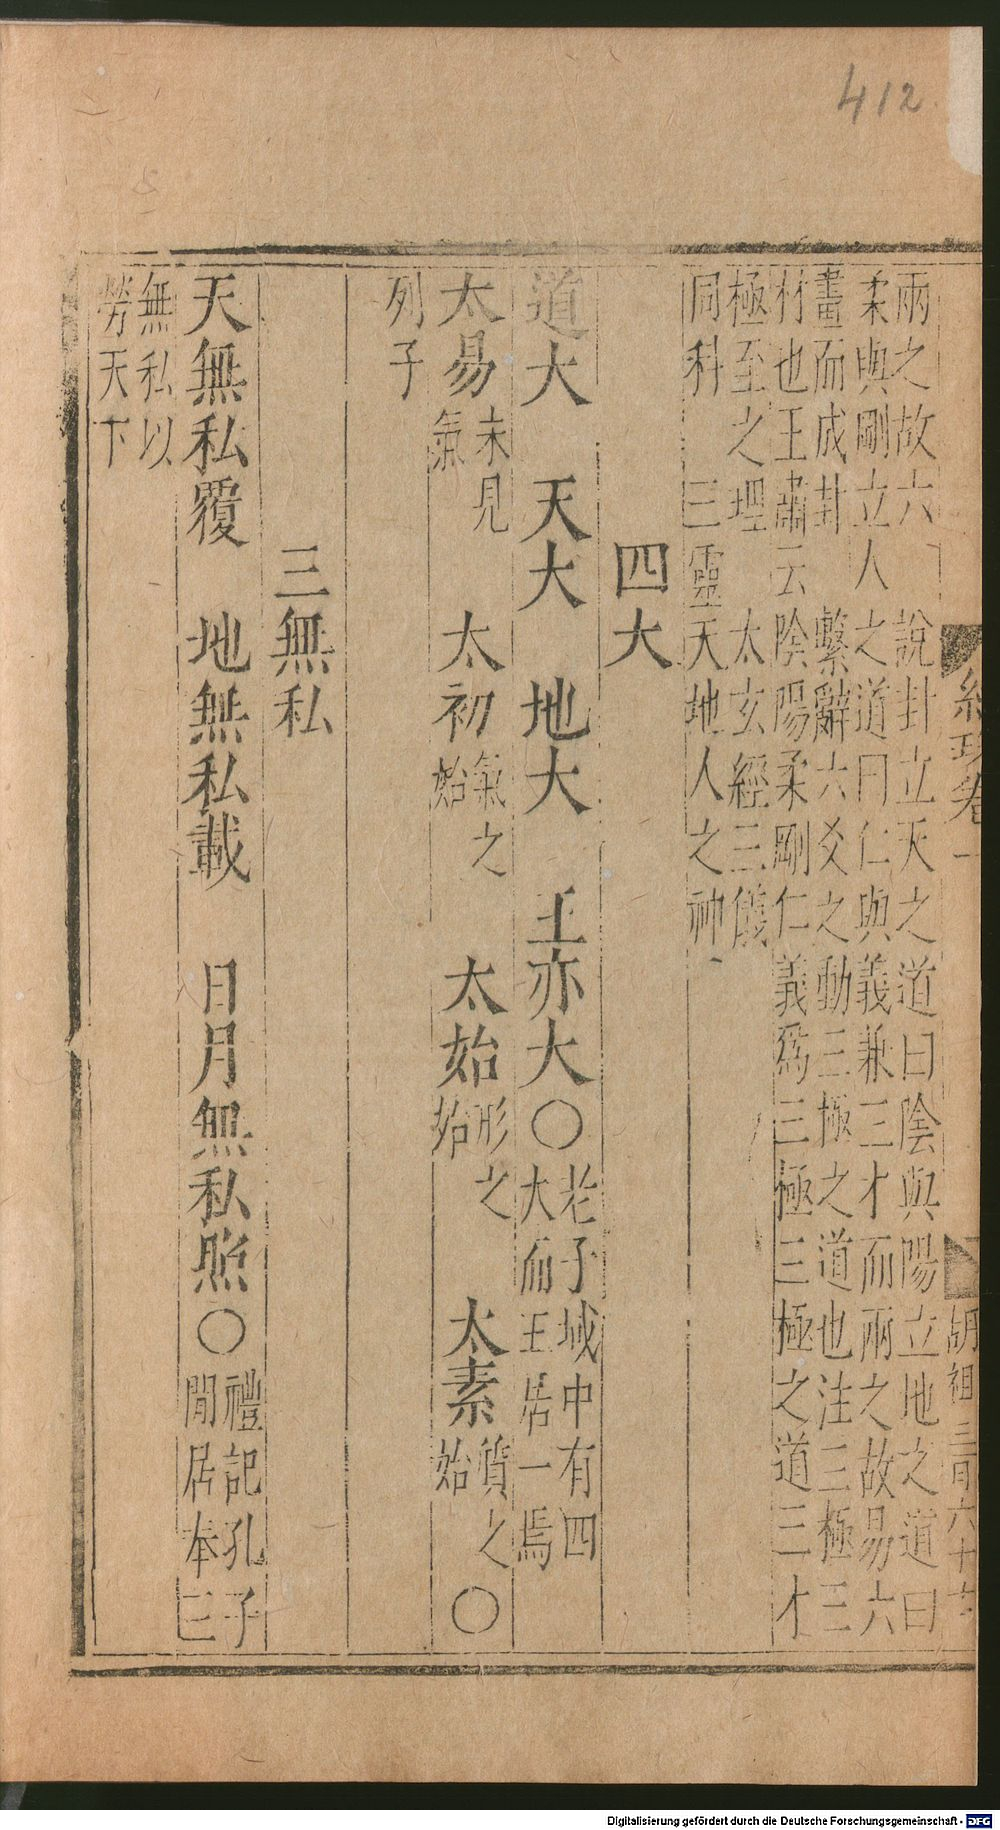 412
兩之故六　說卦立天之道曰陰與陽立地之道曰
柔與剛立人之道曰仁與義兼三才而兩之故易六
畫而成卦　繫辭六爻之動三極之道也注三極三
材也王肅云陰陽柔剛仁義爲三極三極之道三才
極至之理　太玄經三儀
同科　三靈天地人之神
四大
道大　天大　地大　王亦大〇老子域中有四
大而王居一焉
太易未見氣　太初氣之始　太始形之始　太素質之始〇
列子
三無私
天無私覆　地無私載　日月無私照〇禮記孔子
閒居奉三
無私以
勞天下
卷一
胡祖三百六十七
Digitalisierung gefördert durch die Deutsche Forschungsgemeinschaft - DFG